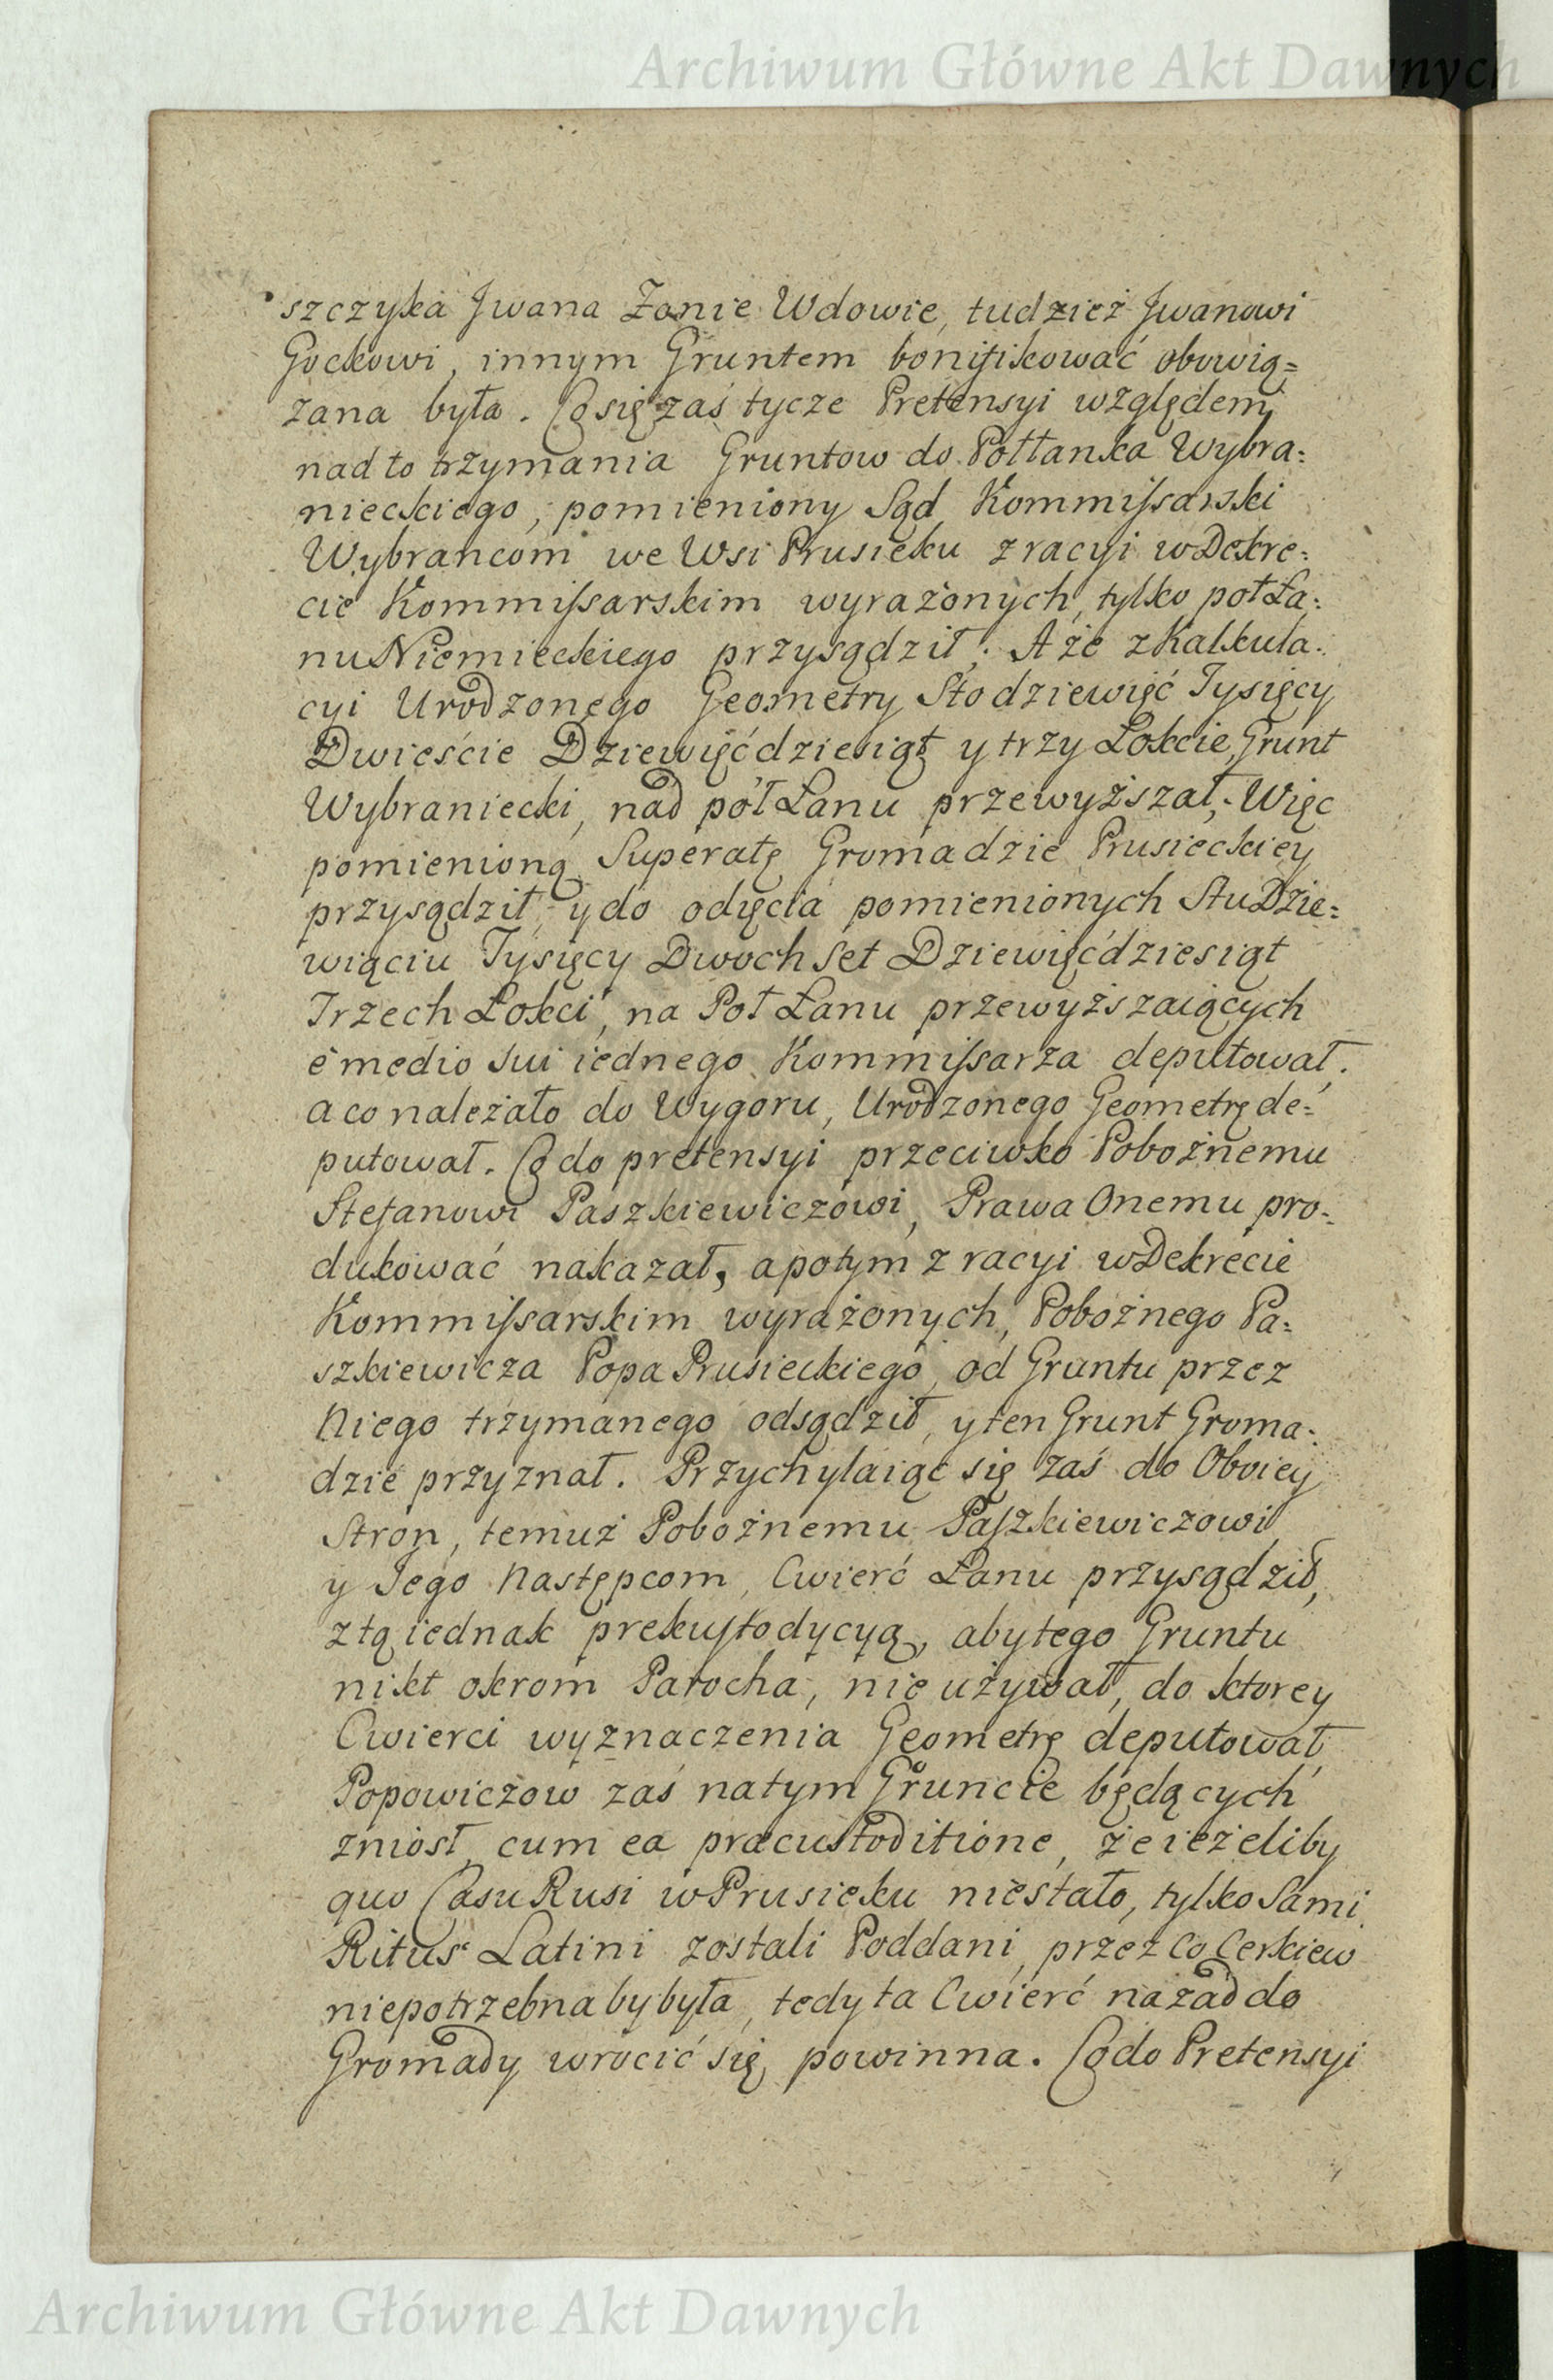 Archiwum Główne Akt Dawnych
szczyka Jwana Żonie Wdowie, tudzież Jwanowi
Gockowi, innym Gruntem bonifikować obowią=
zana była. Co się zaś tycze Pretensyi względem
nad to trzymania Gruntow do Połłanka Wybra=
nieckiego, pomieniony Sąd Kommissarski
Wybrancom we Wsi Prusieku z racyi w Dekre=
cie Kommissarskim wyrażonych, tylko poł Ła=
nu Niemieckiego przysądził; A że z Kalkula=
cyi Urodzonego Geometry Sto dziewięć Tysięcy
Dwieście Dziewięćdziesiąt y trzy Łokcie, Grunt
Wybraniecki, nad pół Łanu przewyższał, Więc
pomienioną Superatę Gromadzie Prusieckiey
przysądził, y do odięcia pomienionych Stu Dzie=
wiąciu Tysięcy Dwoch Set Dziewięćdziesiąt
Trzech Łokci, na Poł Łanu przewyższaiących
e medio sui iednego Kommissarza deputował,
a co należało do Wygoru, Urodzonego Geometrę de=
putował. Co do pretensyi przeciwko Pobożnemu
Stefanowi Paszkiewiczowi, Prawa Onemu pro=
dukować nakazał, a potym z racyi w Dekrecie
Kommissarskim wyrażonych, Pobożnego Pa=
szkiewicza Popa Prusieckiego, od Gruntu przez
Niego trzymanego odsądził, y ten Grunt Groma=
dzie przyznał. Przychylaiąc się zaś do Oboiey
Stron, temuż Pobożnemu Paszkiewiczowi
y Jego Następcom, Cwierć Łanu przysądził,
z tą iednak prekustodycyą, aby tego Gruntu
nikt okrom Parocha, nie używał, do ktorey
Cwierci wyznaczenia Geometrę deputował,
Popowiczow zaś na tym Gruncie będących
zniosł, cum ea praecustoditione, że ieżeliby
quo Casu Rusi w Prusieku niestało, tylko Sami
Ritus Latini zostali Poddani, przez Co Cerkiew
niepotrzebna by była, tedy ta Cwierć nazad do
Gromady wrocić się powinna. Co do Pretensyi
Archiwum Główne Akt Dawnych